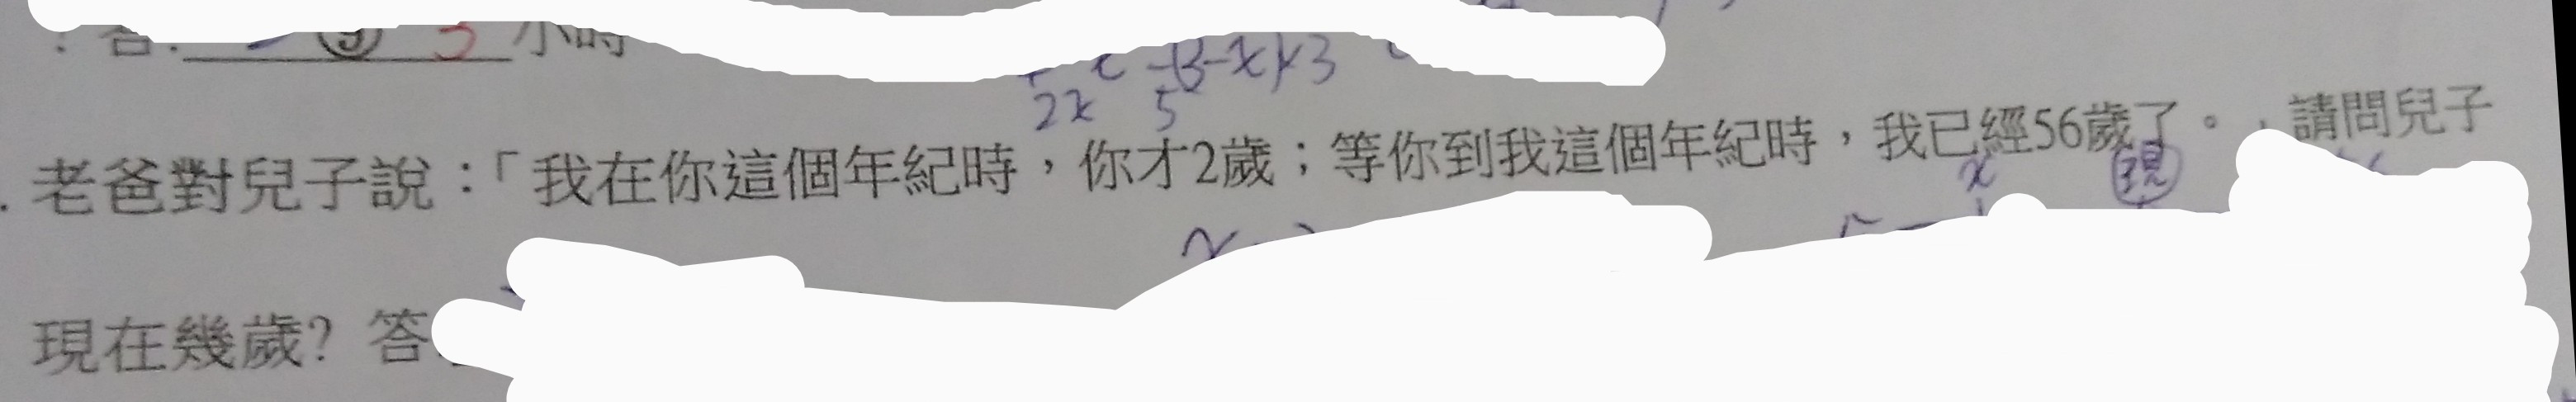 答: 3 小時
2x 5 -(3-x)×3
老爸對兒子說：「我在你這個年紀時，你才2歲；等你到我這個年紀時，我已經56歲了。」請問兒子
x 現
現在幾歲? 答